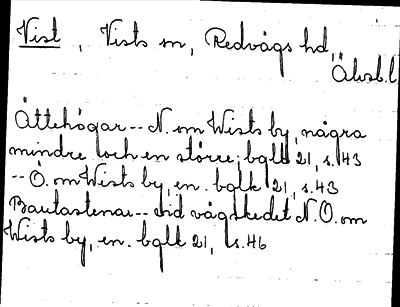 Vist, Vists sn, Redvägs hd,
Älvsb.l.
Ättehögar -- N. om Wists by, några
mindre och en större; bglk 21, s. 43
-- O. om Wists by, en. bglk 21, s. 43
Bautastenar -- vid vägskedet N.O. om
Wists by, en. bglk 21, s. 46